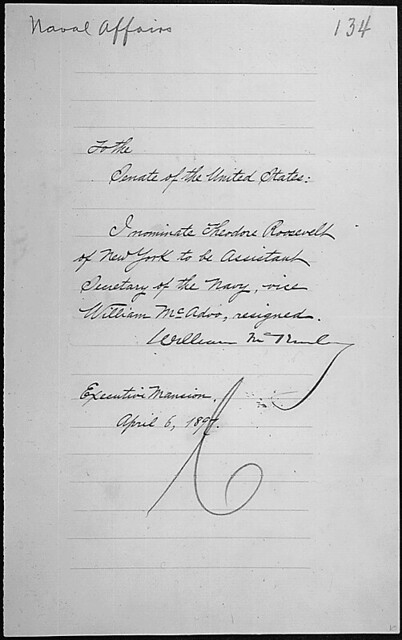 Naval Affairs
134
To the
Senate of the United States:
I nominate Theodore Roosevelt
of New York to be Assistant
Secretary of the Navy, vice
William McAdoo, resigned.
William McKinley
Executive Mansion,
April 6, 1897.